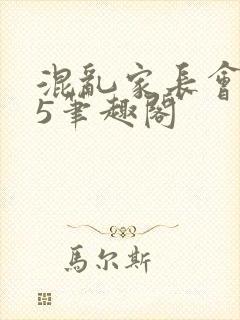 混亂家長會
5筆趣閣
馬尔斯